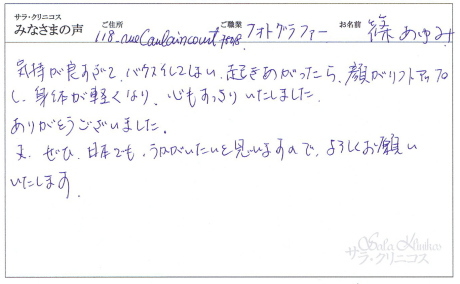 サラ・クリニコス
みなさまの声
ご住所 118-rue Caulaincourt 75018 ご職業 フォトグラファー お名前 篠 あゆみ
気持が良すぎて、バクスイしてしまい、起きあがったら、顔がリフトアップ
し、身体が軽くなり、心もすっきりいたしました。
ありがとうございました。
又、ぜひ、日本でも、うかがいたいと思いますので、よろしくお願い
いたします。
Sala Klinikos
サラ・クリニコス